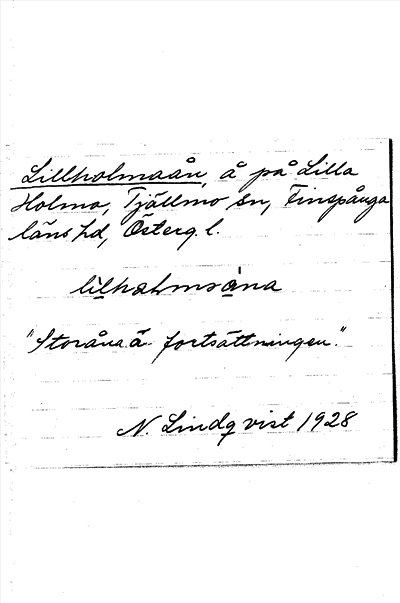 Lillholmaån, å på Lilla
Holma, Tjällmo sn, Finspånga
läns hd, Österg. l.
"Storåna ä fortsättningen."
N. Lindqvist 1928